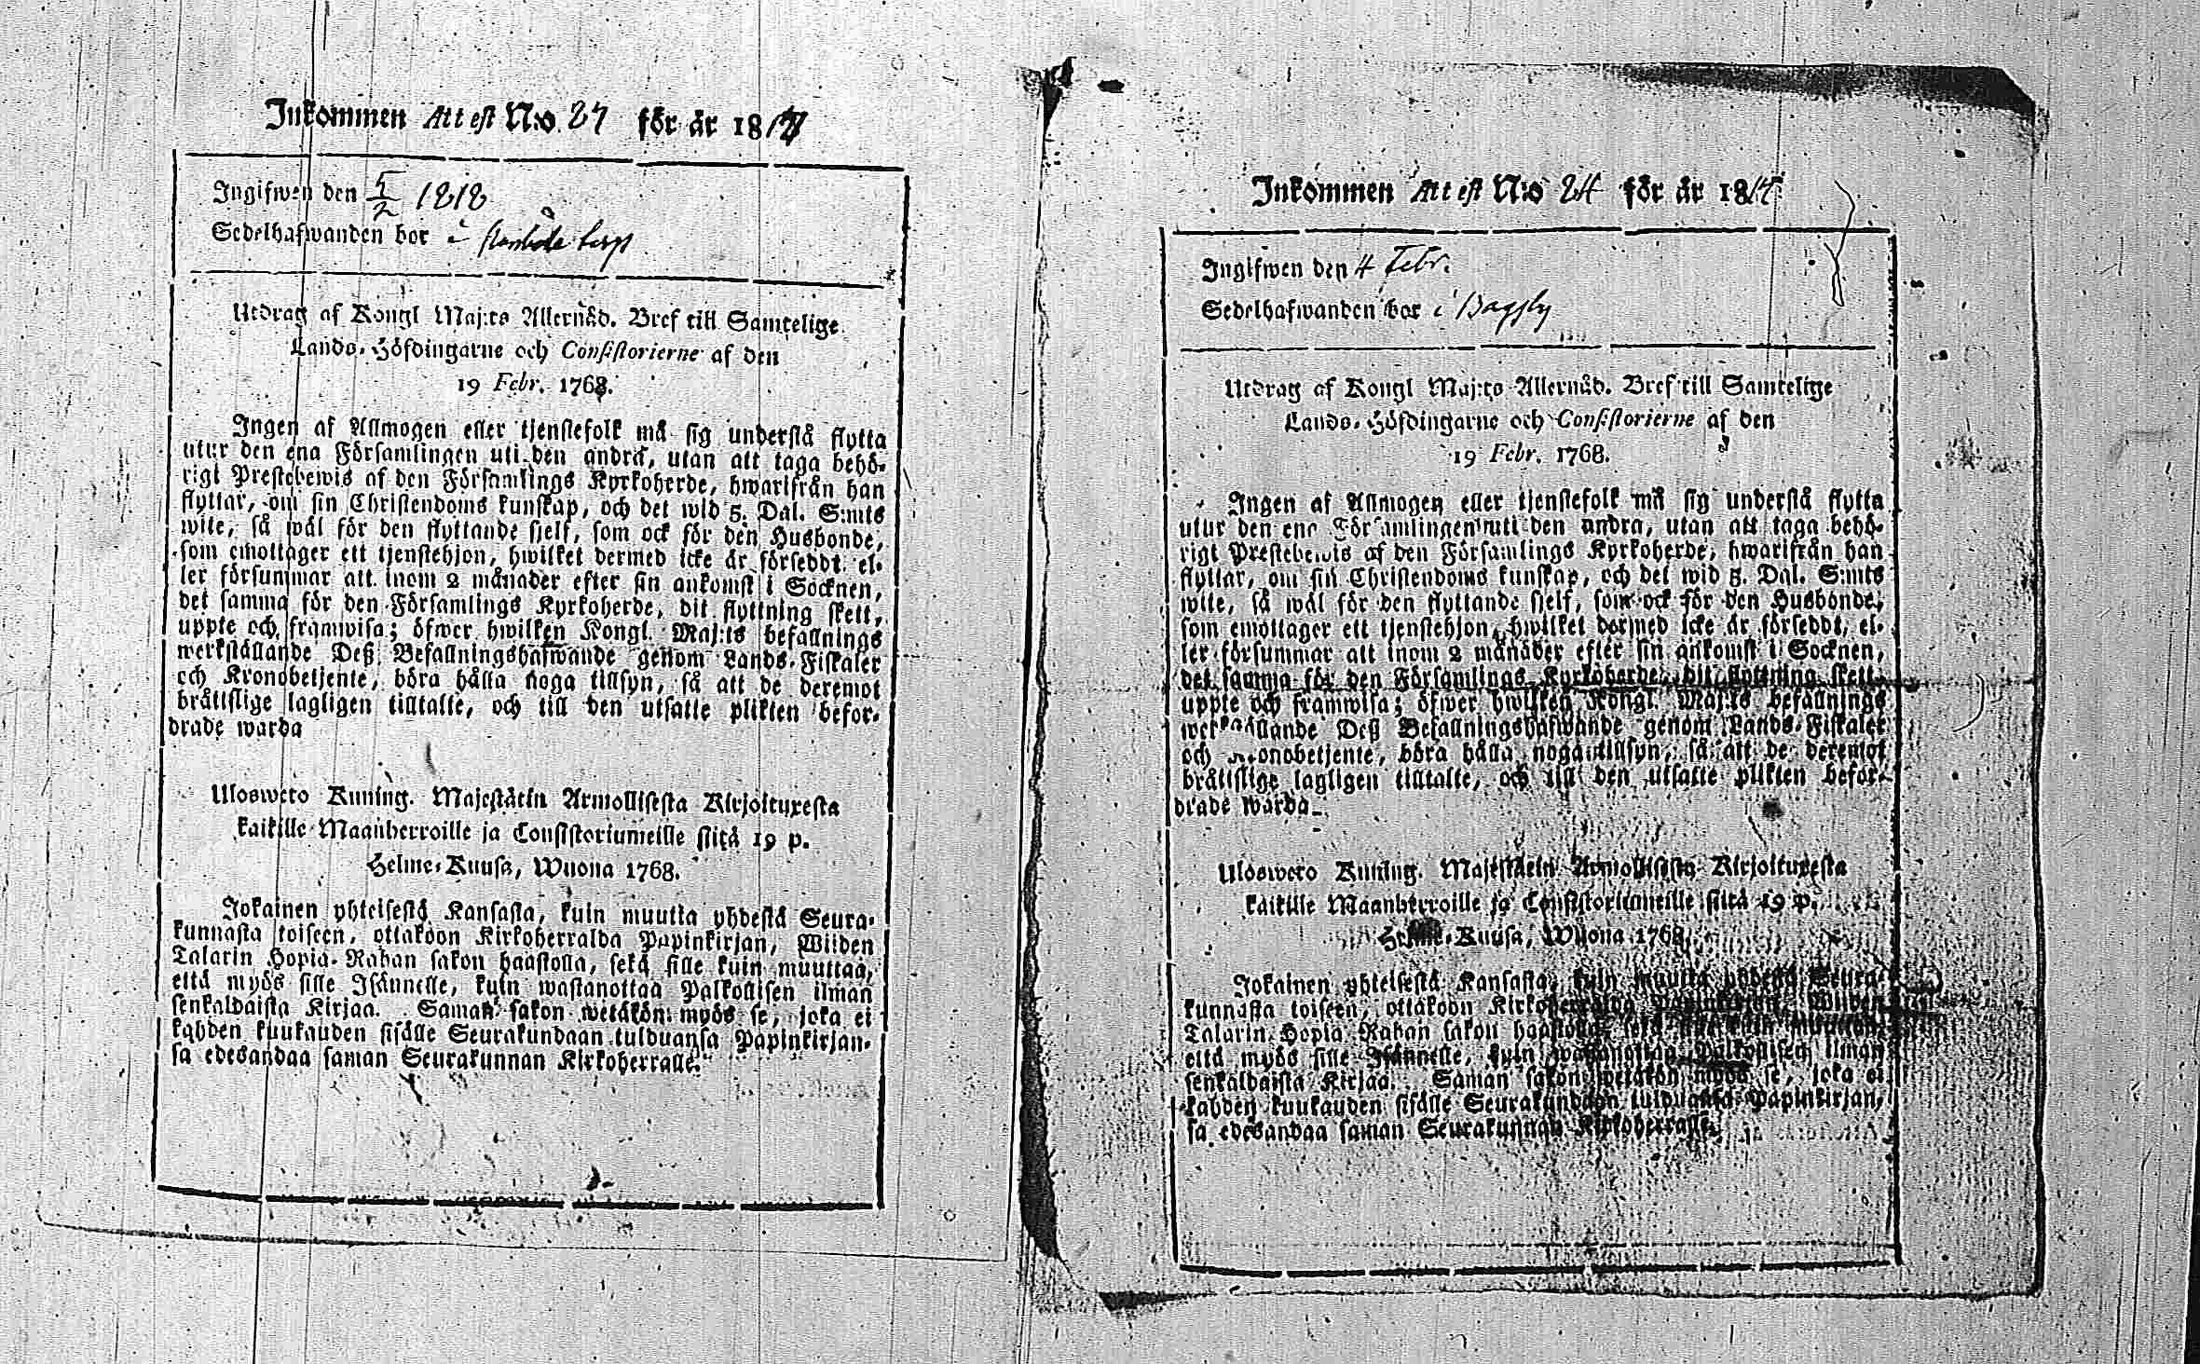 Inkommen Attest N:o 27 för år 1817
Ingifwen den 5/2 1818
Sedelhafwanden bor i
Utdrag af Kongl Maj:ts Allernåd. Bref till Samtelige
Lands-Höfdingarne och Consistorierne af den
19 Febr. 1768.
Ingen af Allmogen eller tjenstefolk må sig understå flytta
utur den ena Församlingen uti den andra, utan att taga behö-
rigt Prestebewis af den Församlings Kyrkoherde, hwarifrån han
flyttar, om sin Christendoms kunskap, och det wid 5. Dal. S:mts
wite, så wäl för den flyttande sjelf, som ock för den Husbonde,
som emottager ett tjenstehjon, hwilket dermed icke är försedt, el-
ler försummar att inom 2 månader efter sin ankomst i Socknen,
det samma för den Församlings Kyrkoherde, dit flyttning skett,
uppte och framwisa; öfwer hwilken Kongl. Maj:ts befallnings
werkställande Deß Befallningshafwande genom Lands-Fiskaler
och Kronobetjente, böra hålla noga tillsyn, så att de deremot
bråttslige lagligen tilltalte, och till den utsatte plikten befor-
drade warda
Ulosweto Kuning. Majestätin Armollisesta Kirjoituxesta
kaikille Maanherroille ja Consistoriumeille siitä 19 p.
Helme-Kuusa, Wuona 1768.
Jokainen yhteisestä Kansasta, kuin muutta yhdestä Seura-
kunnasta toiseen, ottakoon Kirkoherralda Papinkirjan, Wiiden
Talarin Hopia-Rahan sakon haastolla, sekä sille kuin muuttaa,
että myös sille Isännelle, kuin wastanottaa Palkollisen ilman
senkaldaista Kirjaa. Saman sakon wetäkön myös se, joka ei
kahden kuukauden sisälle Seurakundaan tulduansa Papinkirjan-
sa edesandaa saman Seurakunnan Kirkoherralle.
Inkommen Attest N:o 24 för år 1817
Ingifwen den 4 Febr.
Sedelhafwanden bor i Baggby
Utdrag af Kongl Maj:ts Allernåd. Bref till Samtelige
Lands-Höfdingarne och Consistorierne af den
19 Febr. 1768.
Ingen af Allmogen eller tjenstefolk må sig understå flytta
utur den ena Församlingen uti den andra, utan att taga behö-
rigt Prestebewis af den Församlings Kyrkoherde, hwarifrån han
flyttar, om sin Christendoms kunskap, och det wid 5. Dal. S:mts
wite, så wäl för den flyttande sjelf, som ock för den Husbonde,
som emottager ett tjenstehjon, hwilket dermed icke är försedt, el-
ler försummar att inom 2 månader efter sin ankomst i Socknen,
det samma för den Församlings Kyrkoherde, dit flyttning skett,
uppte och framwisa; öfwer hwilken Kongl. Maj:ts befallnings
werkställande Deß Befallningshafwande genom Lands-Fiskaler
och Kronobetjente, böra hålla noga tillsyn, så att de deremot
bråttslige lagligen tilltalte, och till den utsatte plikten befor-
drade warda
Ulosweto Kuning. Majestätin Armollisesta Kirjoituxesta
kaikille Maanherroille ja Consistoriumeille siitä 19 p.
Helme-Kuusa, Wuona 1768.
Jokainen yhteisestä Kansasta, kuin muutta yhdestä Seura-
kunnasta toiseen, ottakoon Kirkoherralda Papinkirjan, Wiiden
Talarin Hopia Rahan sakon haastolla, sekä sille kuin muuttaa,
että myös sille Isännelle, kuin wastanottaa Palkollisen ilman
senkaldaista Kirjaa. Saman sakon wetäkön myös se, joka ei
kahden kuukauden sisälle Seurakundaan tulduansa Papinkirjan-
sa edesandaa saman Seurakunnan Kirkoherralle.